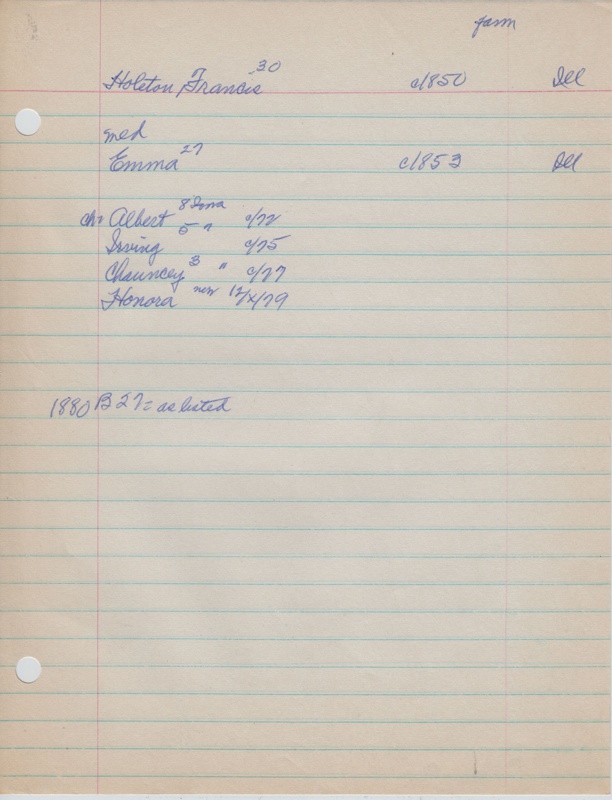 farm
Holeton, Francis 30 c/1850 Ill
med
Emma 27 c/1853 Ill
ch: Albert 8 Iowa c/72
Irving 5 " c/75
Chauncey 3 " c/77
Honora new 12/x/79
1880 B27 = as listed